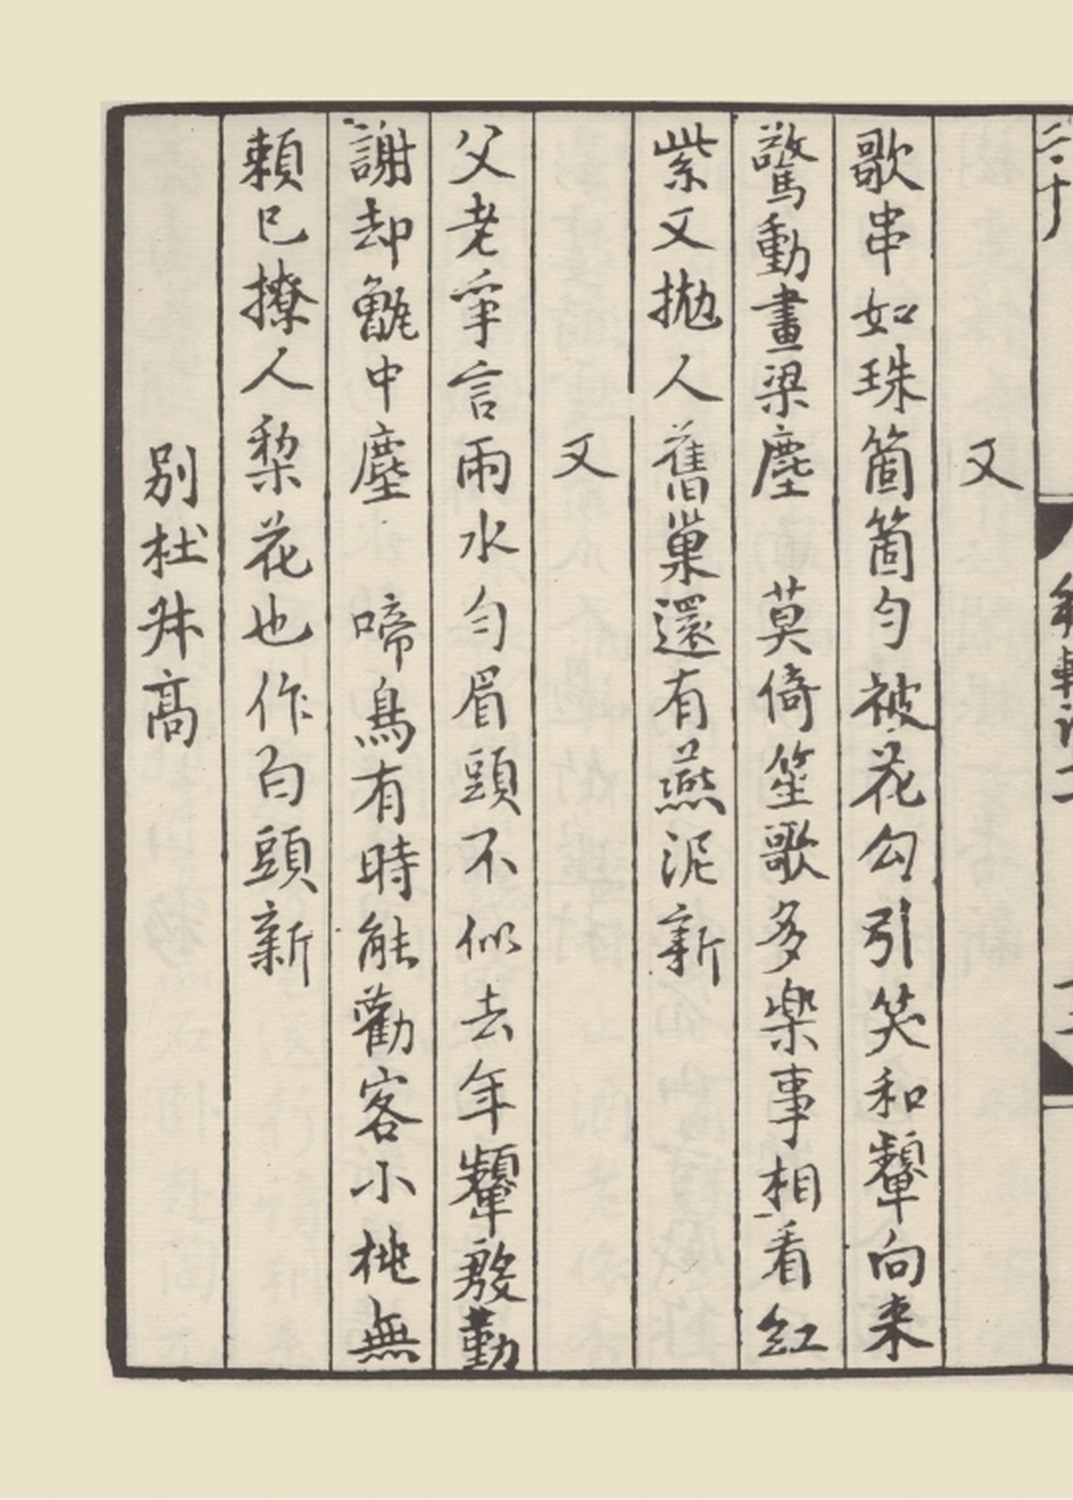 二十
又
歌串如珠箇箇勻被花勾引笑和顰向来
驚動畫梁塵　莫倚笙歌多樂事相看紅
紫又抛人舊巢還有燕泥新
又
父老爭言雨水勻眉頭不似去年顰殷勤
謝却甑中塵　啼鳥有時能勸客小桃無
頼已撩人梨花也作白頭新
別杜叔高